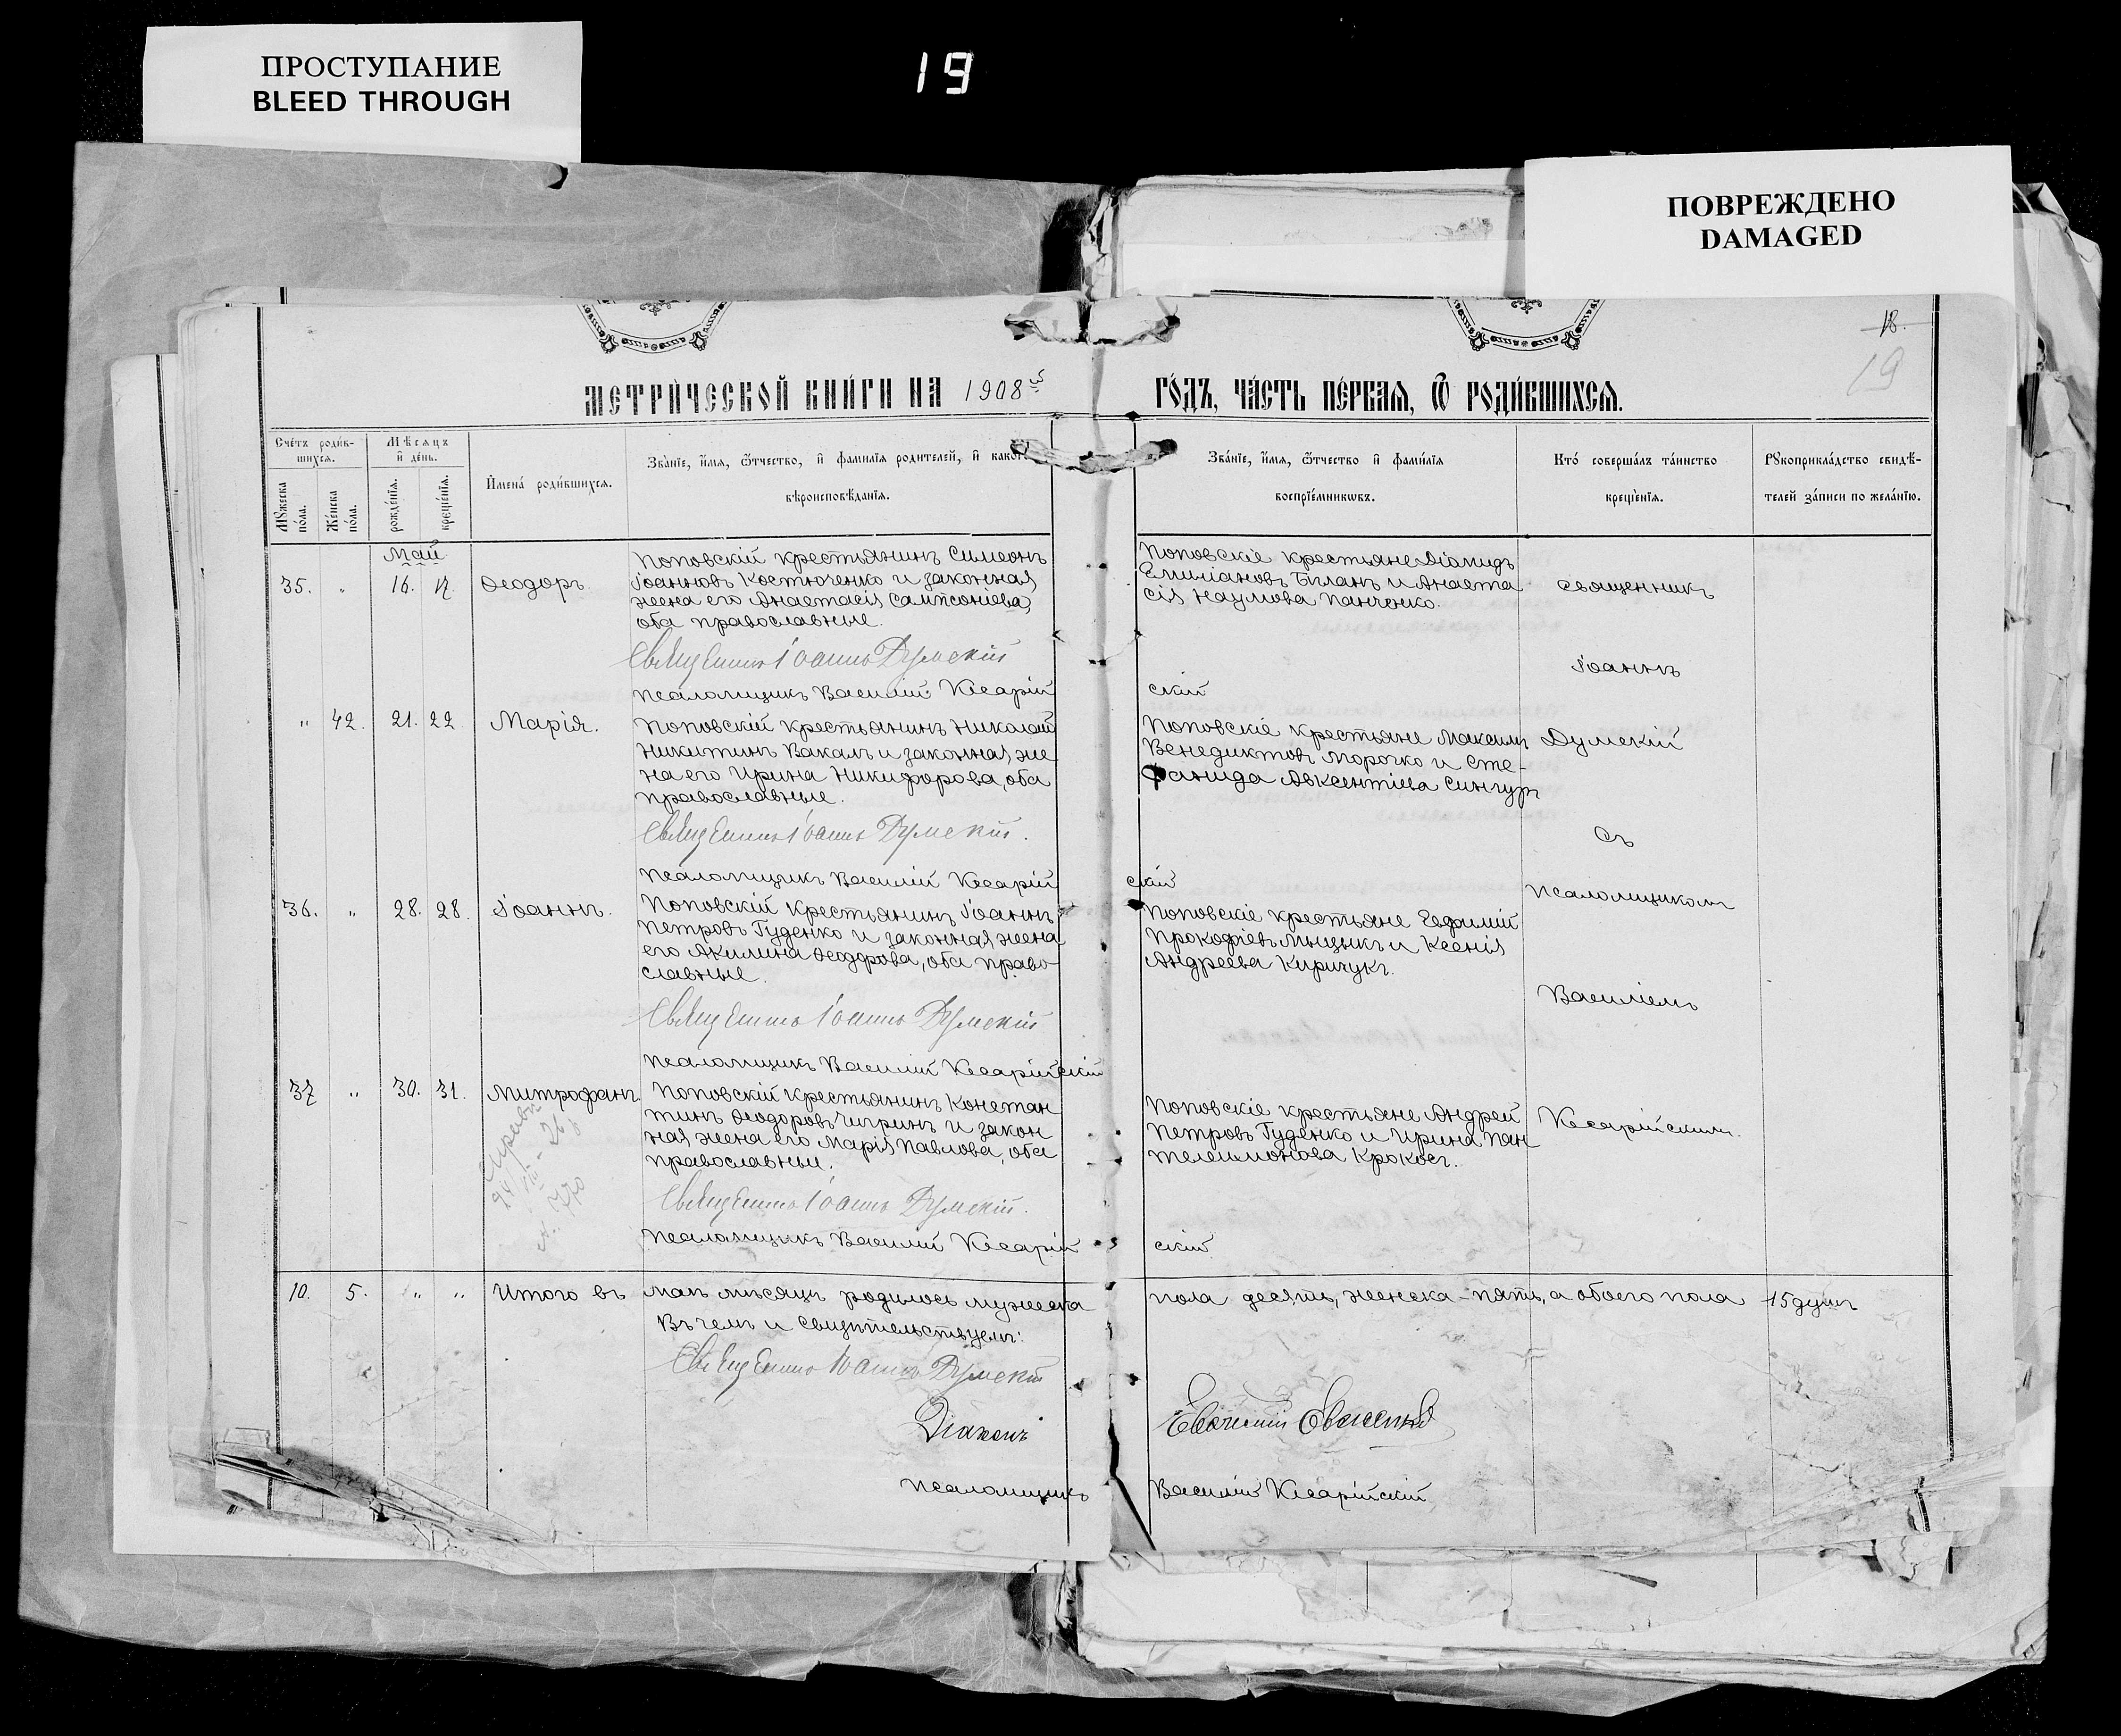 ПРОСТУПАНИЕ
BLEED THROUGH
19
ПОВРЕЖДЕНО
DAMAGED
18.
19
МЕТРИЧЕСКОЙ КНИГИ НА 1908 ГОДЪ, ЧАСТЬ ПЕРВАЯ, Ѿ РОДИВШИХСЯ.
Счетъ родив-
шихся.
Мѣсяцъ
и день.
Мужеска
пола.
Женска
пола.
рожденія.
крещенія.
Имена родившихся.
Званіе, имя, ѿчество, и фамилія родителей, и какого
вѣроисповѣданія.
Званіе, имя, ѿчество и фамилія
воспріемниковъ.
Кто совершалъ таинство
крещенія.
Рукоприкладство свидѣ-
телей записи по желанію.
Май
35. " 16. 17. Ѳеодоръ.
Поповскій крестьянинъ Симеонъ
Іоанновъ Костюченко и законная
жена его Анастасія Сампсоніева,
оба православные.
Священникъ Іоаннъ Думскій
Псаломщикъ Василій Кесарій
скій
Поповскіе крестьяне Діомидъ
Емиліановъ Біланъ и Анаста
сія Наумова Панченко.
Священникъ
Іоаннъ
" 42. 21. 22. Марія.
Поповскій крестьянинъ Николай
Никитинъ Вакалъ и законная же
на его Ирина Никифорова, оба
православные.
Священникъ Іоаннъ Думскій.
Псаломщикъ Василій Кесарій
скій
Поповскіе крестьяне Максимъ
Венедиктовъ Морочко и Сте-
фанида Авксентіева Сингуръ
Думскій
съ
36. " 28. 28. Іоаннъ.
Поповскій крестьянинъ Іоаннъ
Петровъ Гуденко и законная жена
его Акилина Ѳеодорова, оба право-
славные.
Священникъ Іоаннъ Думскій
Псаломщикъ Василій Кесарійскій
Поповскіе крестьяне Евфимій
Прокофіевъ Мыцыкъ и Ксенія
Андреева Киричукъ.
Псаломщикомъ
Василіемъ
37 " 30. 31. Митрофанъ
Поповскій крестьянинъ Констан
тинъ Ѳеодоровъ Чигринъ и закон
ная жена его Марія Павлова, оба
православные.
Священникъ Іоаннъ Думскій.
Псаломщикъ Василій Кесарій
скій
Поповскіе крестьяне Андрей
Петровъ Гуденко и Ирина Пан
телеимонова Крокосъ.
Кесарійскимъ.
10. 5. " " Итого въ маѣ мѣсяцѣ родилось мужеска пола десять, женска - пять, а обоего пола 15 душъ
Въ чемъ и свидѣтельствуемъ:
Священникъ Іоаннъ Думскій
Діаконъ
Псаломщикъ Василій Кесарійскій